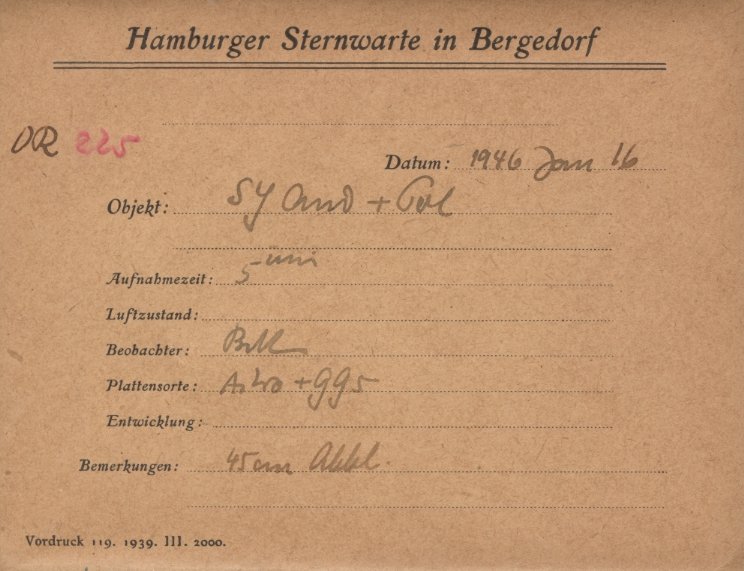 Hamburger Sternwarte in Bergedorf
OR 225
Datum: 1946 Jan 16
Objekt: SY And + Pol
Aufnahmezeit: 5 min
Luftzustand:
Beobachter:
Plattensorte: Astro + GG5
Entwicklung:
Bemerkungen: 45cm Abbl.
Vordruck 119. 1939. III. 2000.